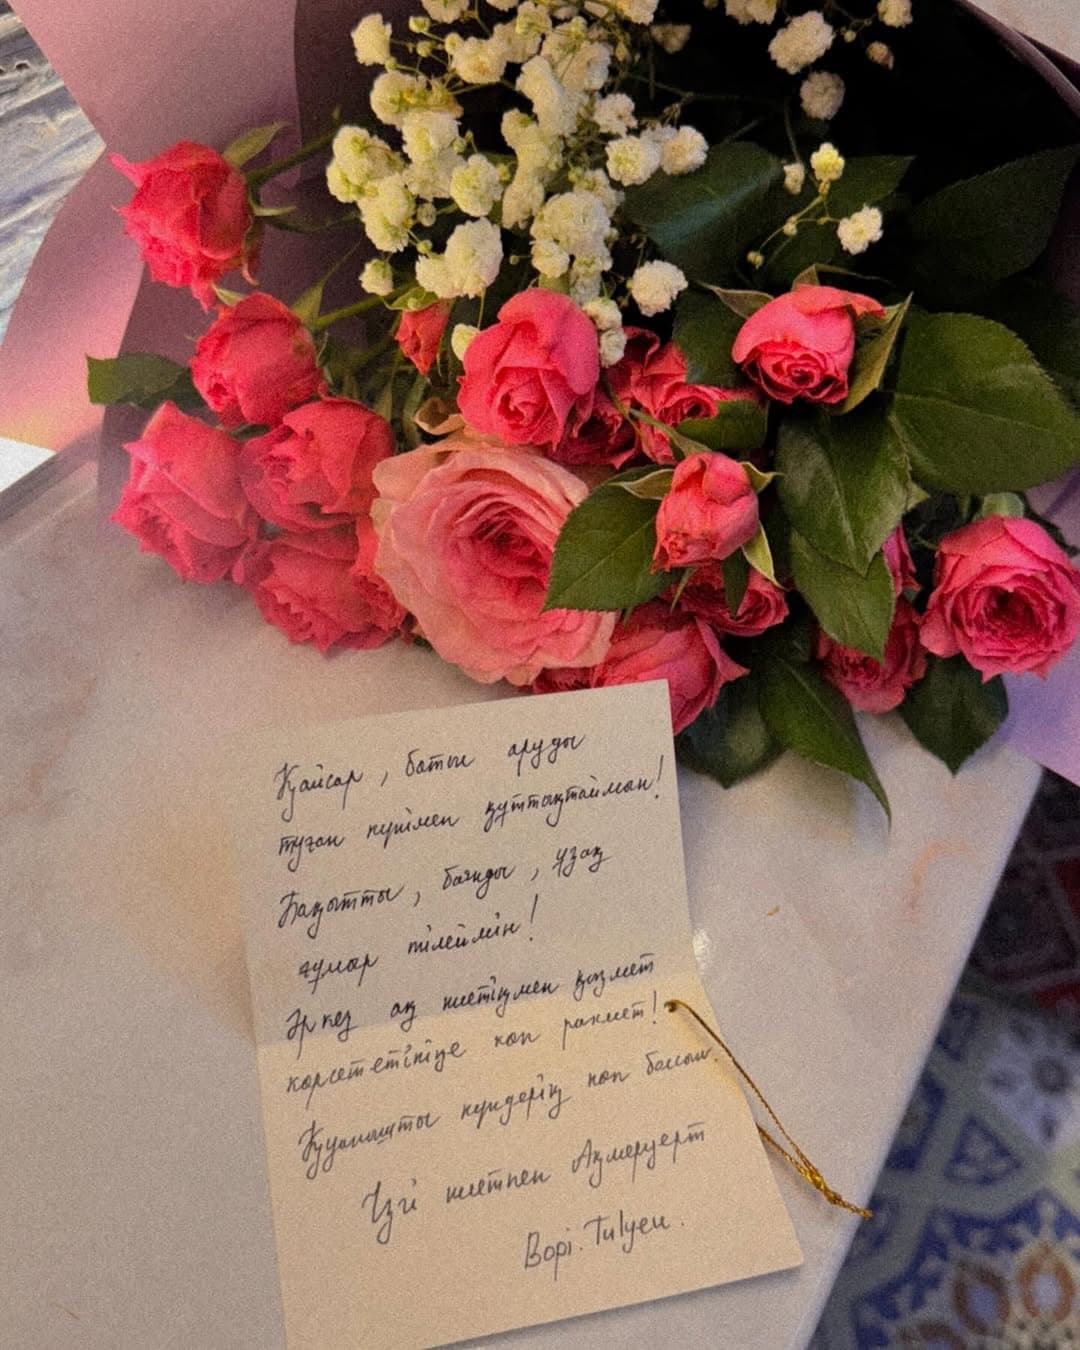 Қайсар, батыл аруды
туған күнімен құттықтаймын!
Бақытты, баянды, ұзақ
ғұмыр тілеймін!
Әркез ақ ниетіңмен қызмет
көрсететініңе көп рахмет!
Қуанышты күндерің көп болсын.
Ізгі ниетпен Ақмеруерт
Bopi.Tulyeu.